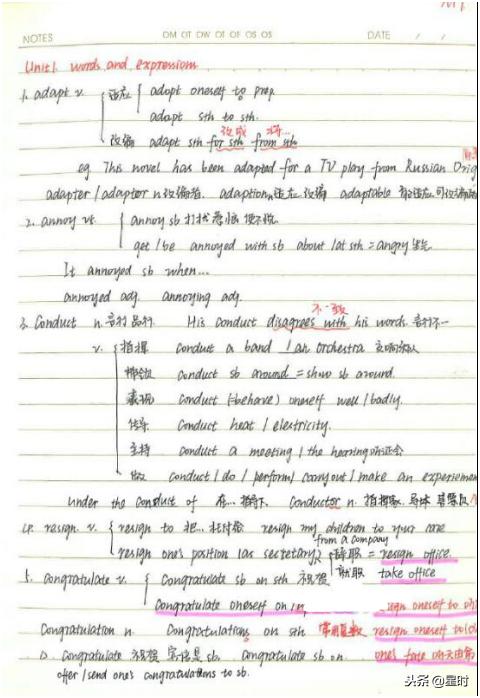 NOTES MO TU WE TH FR SA SU DATE / /
Unit1. words and expressions
1. adapt v. 适应 adapt oneself to prep
adapt sth to sth.
改成 将...
改编 adapt sth for sth from sth
eg. This novel has been adapted for a TV play from Russian
adapter / adaptor n 改编者. adaption n 适应 改编 adaptable
2. annoy vt. annoy sb 打扰
get / be annoyed with sb about / at sth = angry 生气
It annoyed sb when...
annoyed adj. annoying adj.
不一致
3. Conduct n. 言行 品行 His conduct disagrees with his words. 言行不一
v. 指挥 conduct a band / an orchestra 交响乐队
带领 conduct sb around = show sb around.
表现 conduct (=behave) oneself well / badly.
传导 conduct heat / electricity.
主持 conduct a meeting / the hearing 听证会
做 conduct / do / perform / carry out / make an experiment
under the conduct of 在...指挥下 Conductor n. 指挥家 导体
4. resign. v. resign to 把...托付给 resign my children to your care
from a company
resign one's position (as secretary) 辞职 = resign office.
就职 take office
5. Congratulate v. Congratulate sb on sth 祝贺
Congratulate oneself on resign oneself to
Congratulation n. Congratulations on sth 常用复数 resign oneself to
Congratulate 祝贺 宾语是 sb. Congratulate sb on. one's fate
offer / send one's congratulations to sb.
头条 @星时